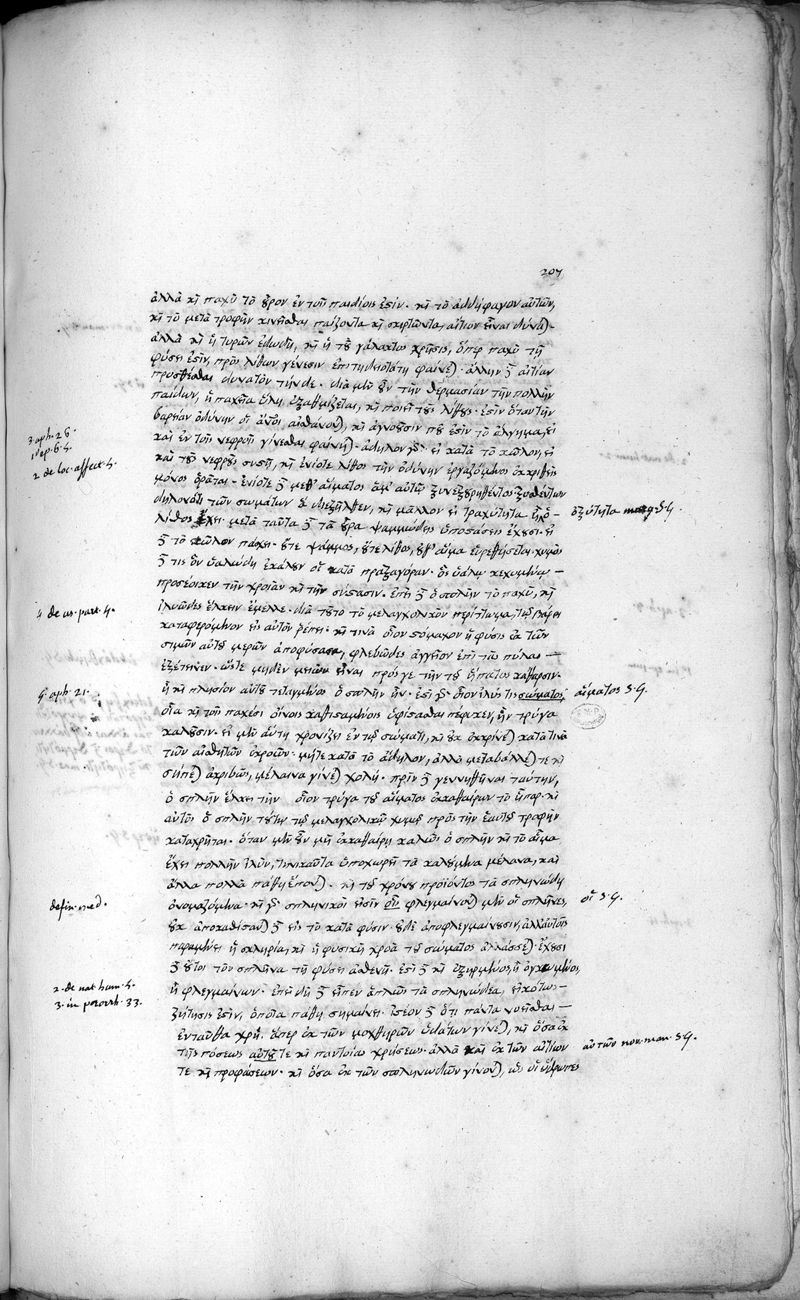 207
ἀλλὰ κỳ παχὺ τὸ οὖρον ἐν τοῖς παιδίοις ἐστίν. κỳ τὸ ἀδδηφαγον αὐτῶν,
κỳ τὸ μετὰ τροφὴν κινεῖσθαι παίζοντα κỳ σκιρτῶντα, αἴτιον εἶναι δύνα).
ἀλλὰ κỳ ἡ τυρῶν ἐδωδὴ, κỳ ἡ τοῦ γάλακτος χρῆσις, ὅπερ παχὺ τῇ
φύσει ἐστὶν, πρὸς λίθων γένεσιν ἐπιτηδειοτάτη φαίνε). ἄλλην δὲ αἰτίαν
προστίθεσθαι δυνατὸν τήνδε. διὰ μὲν οὖν τὴν θερμασίαν τὴν πολλὴν
παίδων, ἡ παχεῖα ὕλη ἐξατμίζεται, κỳ ποιεῖ τοὺς λίθους. ἐστὶν ὅταν τὴν
βαρεῖαν ὀδύνην οἱ ἄνοι αἰσθάνον), κỳ ἀγνοοῦσιν ποῦ ἐστὶν τὸ ἄλγημα, εἰ
καὶ ἐν τοῖς νεφροῖς γίνεσθαι φαίνη). ἄδηλον γὰρ εἰ κατὰ τὸ κῶλον, εἰ
καὶ τοὺς νεφροὺς κỳ ἐνίοτε λίθος τὴν ὀδύνην ἐργαζόμενος ἐκκριθεὶς
μόνος ὁρᾶται. ἐνίοτε δὲ μεθ' αἵματος ἅμ' αὐτῷ
δηλονότι τῶν σωμάτων ὃ διεξῆλθεν, κỳ μᾶλλον εἰ τραχύτητα
λίθος ἔχει. μετὰ ταῦτα δὲ τὰ οὖρα ψαμμώδεις ὑποστάσεις ἔχουσι. εἰ
δὲ τὸ κῶλον πάσχει. οὔτε ψάμμος, οὔτε λίθος, οὔθ' αἷμα εὑρεθήσεται. χυμὸς
δὲ τις ὃν ὑαλώδη ἐκάλουν οἱ κατὰ πραξαγόραν. ὃς ὑάλῳ κεχυμένῳ –
προσέοικεν τὴν χροιὰν κỳ τὴν σύστασιν. ἐπεὶ δὲ ὁ σπλὴν τὸ παχὺ, κỳ
ἰλυῶδες ἕλκειν ἔμελλε. διὰ τοῦτο τὸ μελαγχολικὸν περίττωμα, τῷ βάρει
καταφερόμενον εἰς αὐτὸν ῥέπει. κỳ τινὰ οἷον στόμαχον ἡ φύσις ἐκ τῶν
σιμῶν αὐτοῦ μερῶν ἀποφύσασα, φλεβῶδες ἀγγεῖον ἐπὶ τὰς πύλας –
ἐξέτεινεν. ὥστε μηδὲν μεῖον εἶναι πρός γε τὴν τοῦ ἥπατος κάθαρσιν.
ἢ κỳ πλησίον αὐτοῦ τεταγμένος ὁ σπλὴν ἦν. ἐστὶ γὰρ οἷον ἰλύς τις σώματος,
οἷα κỳ τοῖς παχέσι οἴνοις καθισταμένοις ὑφίστασθαι πέφυκεν, ἣν τρύγα
καλοῦσιν. εἰ μὲν αὕτη χρονίζει ἐν τῷ σώματι, κỳ οὐκ ἐκκρίνε) κατά τινα
τῶν αἰσθητῶν ἐκροῶν. μήτε κατὰ τὸ ἄδηλον, ἀλλὰ μεταβάλλε) τε κỳ
σήπε) ἀκριβῶς, μέλαινα γίνε) χολή. πρὶν δὲ γεννηθῆναι ταύτην,
ὁ σπλὴν ἕλκει τὴν οἷον τρύγα τοῦ αἵματος ἐκκαθαίρων τὸ ἧπαρ. κỳ
αὐτὸς ὁ σπλὴν τούτῳ τῷ μελαγχολικῷ χυμῷ πρὸς τὴν ἑαυτοῦ τροφὴν
καταχρῆται. ὅταν μὲν οὖν μὴ ἐκκαθαίρῃ καλῶς ὁ σπλὴν κỳ τὸ αἷμα
ἔχει πολλὴν ἰλὺν, τηνικαῦτα ὑποχωρεῖ τὰ καλούμενα μέλανα, καὶ
ἄλλα πολλὰ πάθη ἕπον). κỳ τοῦ χρόνου προϊόντος τὰ σπληνώδη
ὀνομαζόμενα. κỳ γὰρ σπληνικοί εἰσὶν ὧν φλεγμαίνου) μὲν οἱ σπλῆνες,
οὐκ ἀποκαθίσταν) δὲ εἰς τὸ κατὰ φύσιν. οὐδὲ ἀποφλεγμαίνουσιν, ἀλλ' αὐτοῖς
παραμένει ἡ σκληρία, κỳ ἡ φυσικὴ χροὰ τοῦ σώματος ἀλλάσσε). ἔχουσι
δὲ οὗτοι τὸν σπλῆνα τῇ φύσει ἀσθενῆ. ἐστὶ δὲ κỳ ἐξηρμένος, ἢ ὀγκούμενος,
ἢ φλεγμαίνων. ἐπειδὴ δὲ εἶπεν ἁπλῶς τὰ σπληνώδεα, εἰκότως –
ζήτησίς ἐστιν, ὁποῖα πάθη σημαίνει. ἰστέον δὲ ὅτι πάντα νοεῖσθαι –
ἐνταῦθα χρή. ἅπερ ἐκ τῶν μοχθηρῶν ὑδάτων γίνε), κỳ ὅσα ἐκ
τῆς πόσεως αὐτῆς τε κỳ παντοίας χρήσεως. ἀλλὰ καὶ ἐκ τῶν αἰτίων
τε κỳ προφάσεων. κỳ ὅσα ἐκ τῶν σπληνωδῶν γίνον), ὡς οἱ ὕδρωπες
3 aph. 26.
1 ep. 6. 4.
2 de loc. affect. 4.
4 de us. part. 4.
4 aph. 21.
defin. med.
2. de nat. hum. 4.
3. in prorrh. 33.
ὀξύτητα marg. SG.
αἵματος S.G.
οἷ S.G.
αὐτῶν non. man. SG.